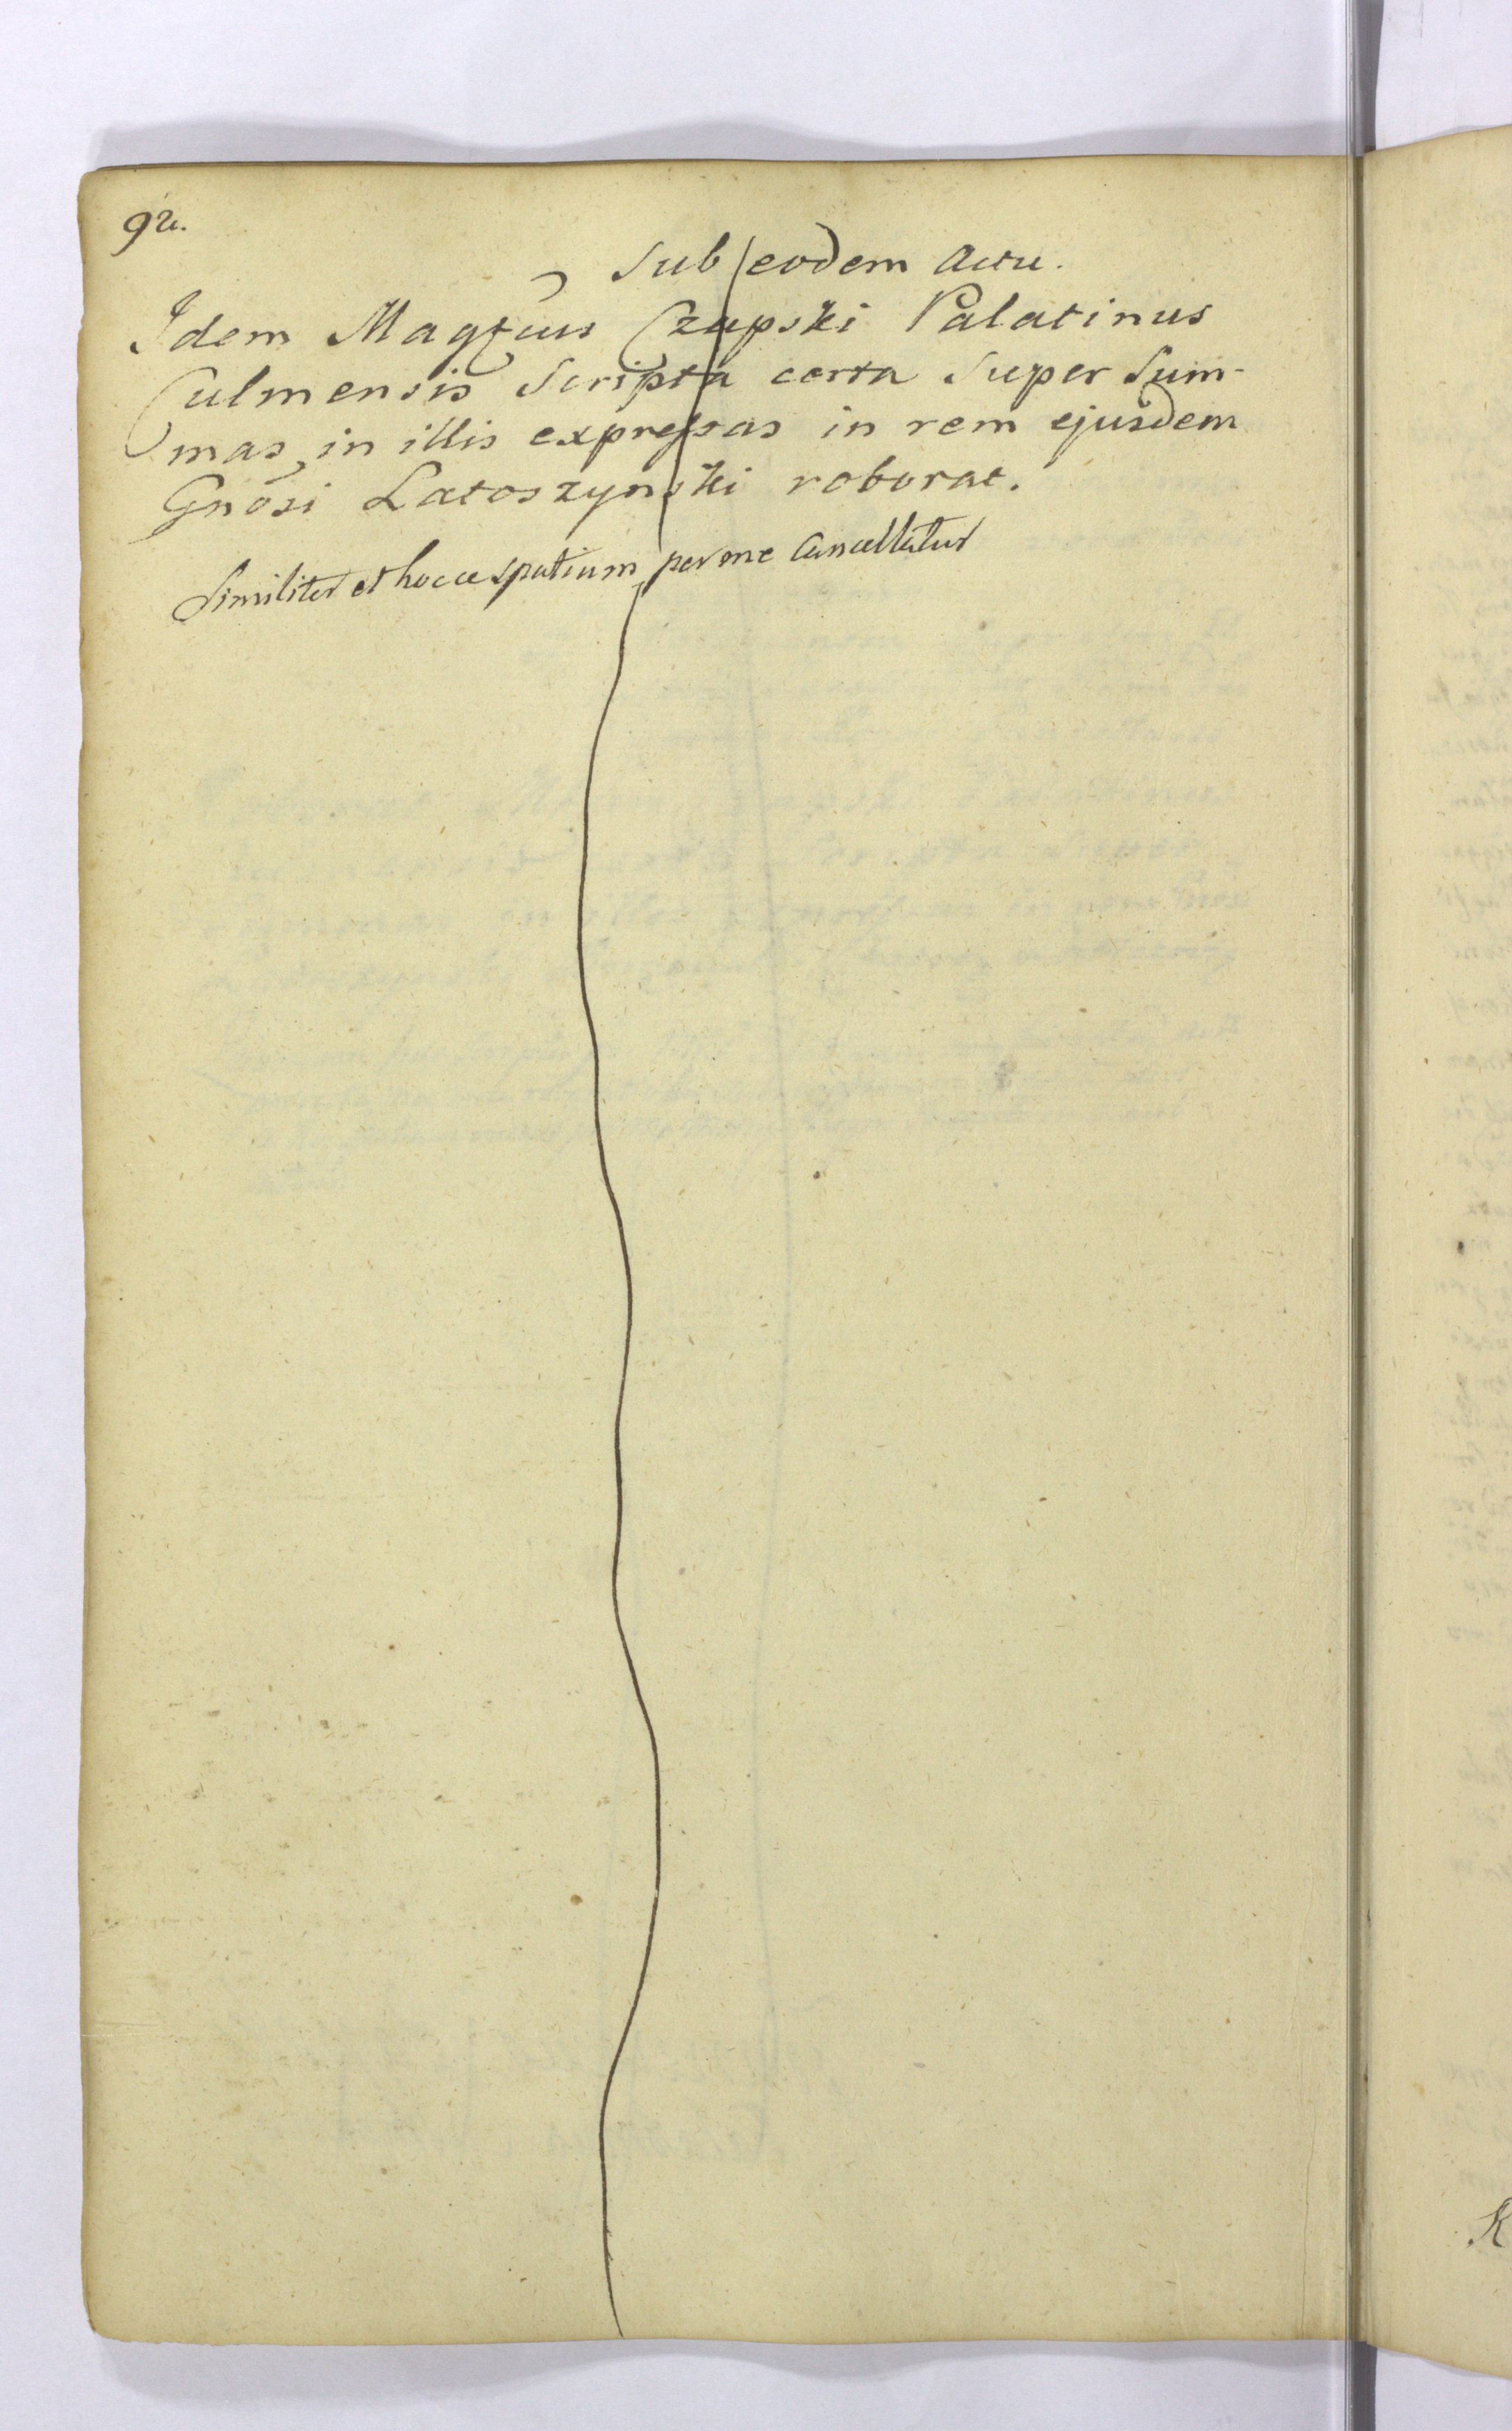 92.
Sub eodem Actu.
Idem Magfcus Czapski Palatinus
Culmensis Scripta certa Super Sum-
mas in illis expressas in rem ejusdem
Gnosi Latoszynski roborat.
Similiter et hocce spatium per me Cancellatur